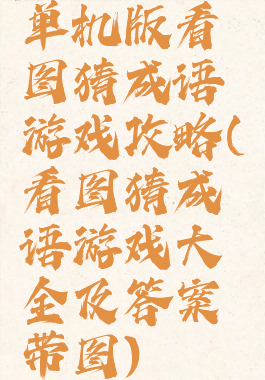 单机版看
图猜成语
游戏攻略(
看图猜成
语游戏大
全及答案
带图)